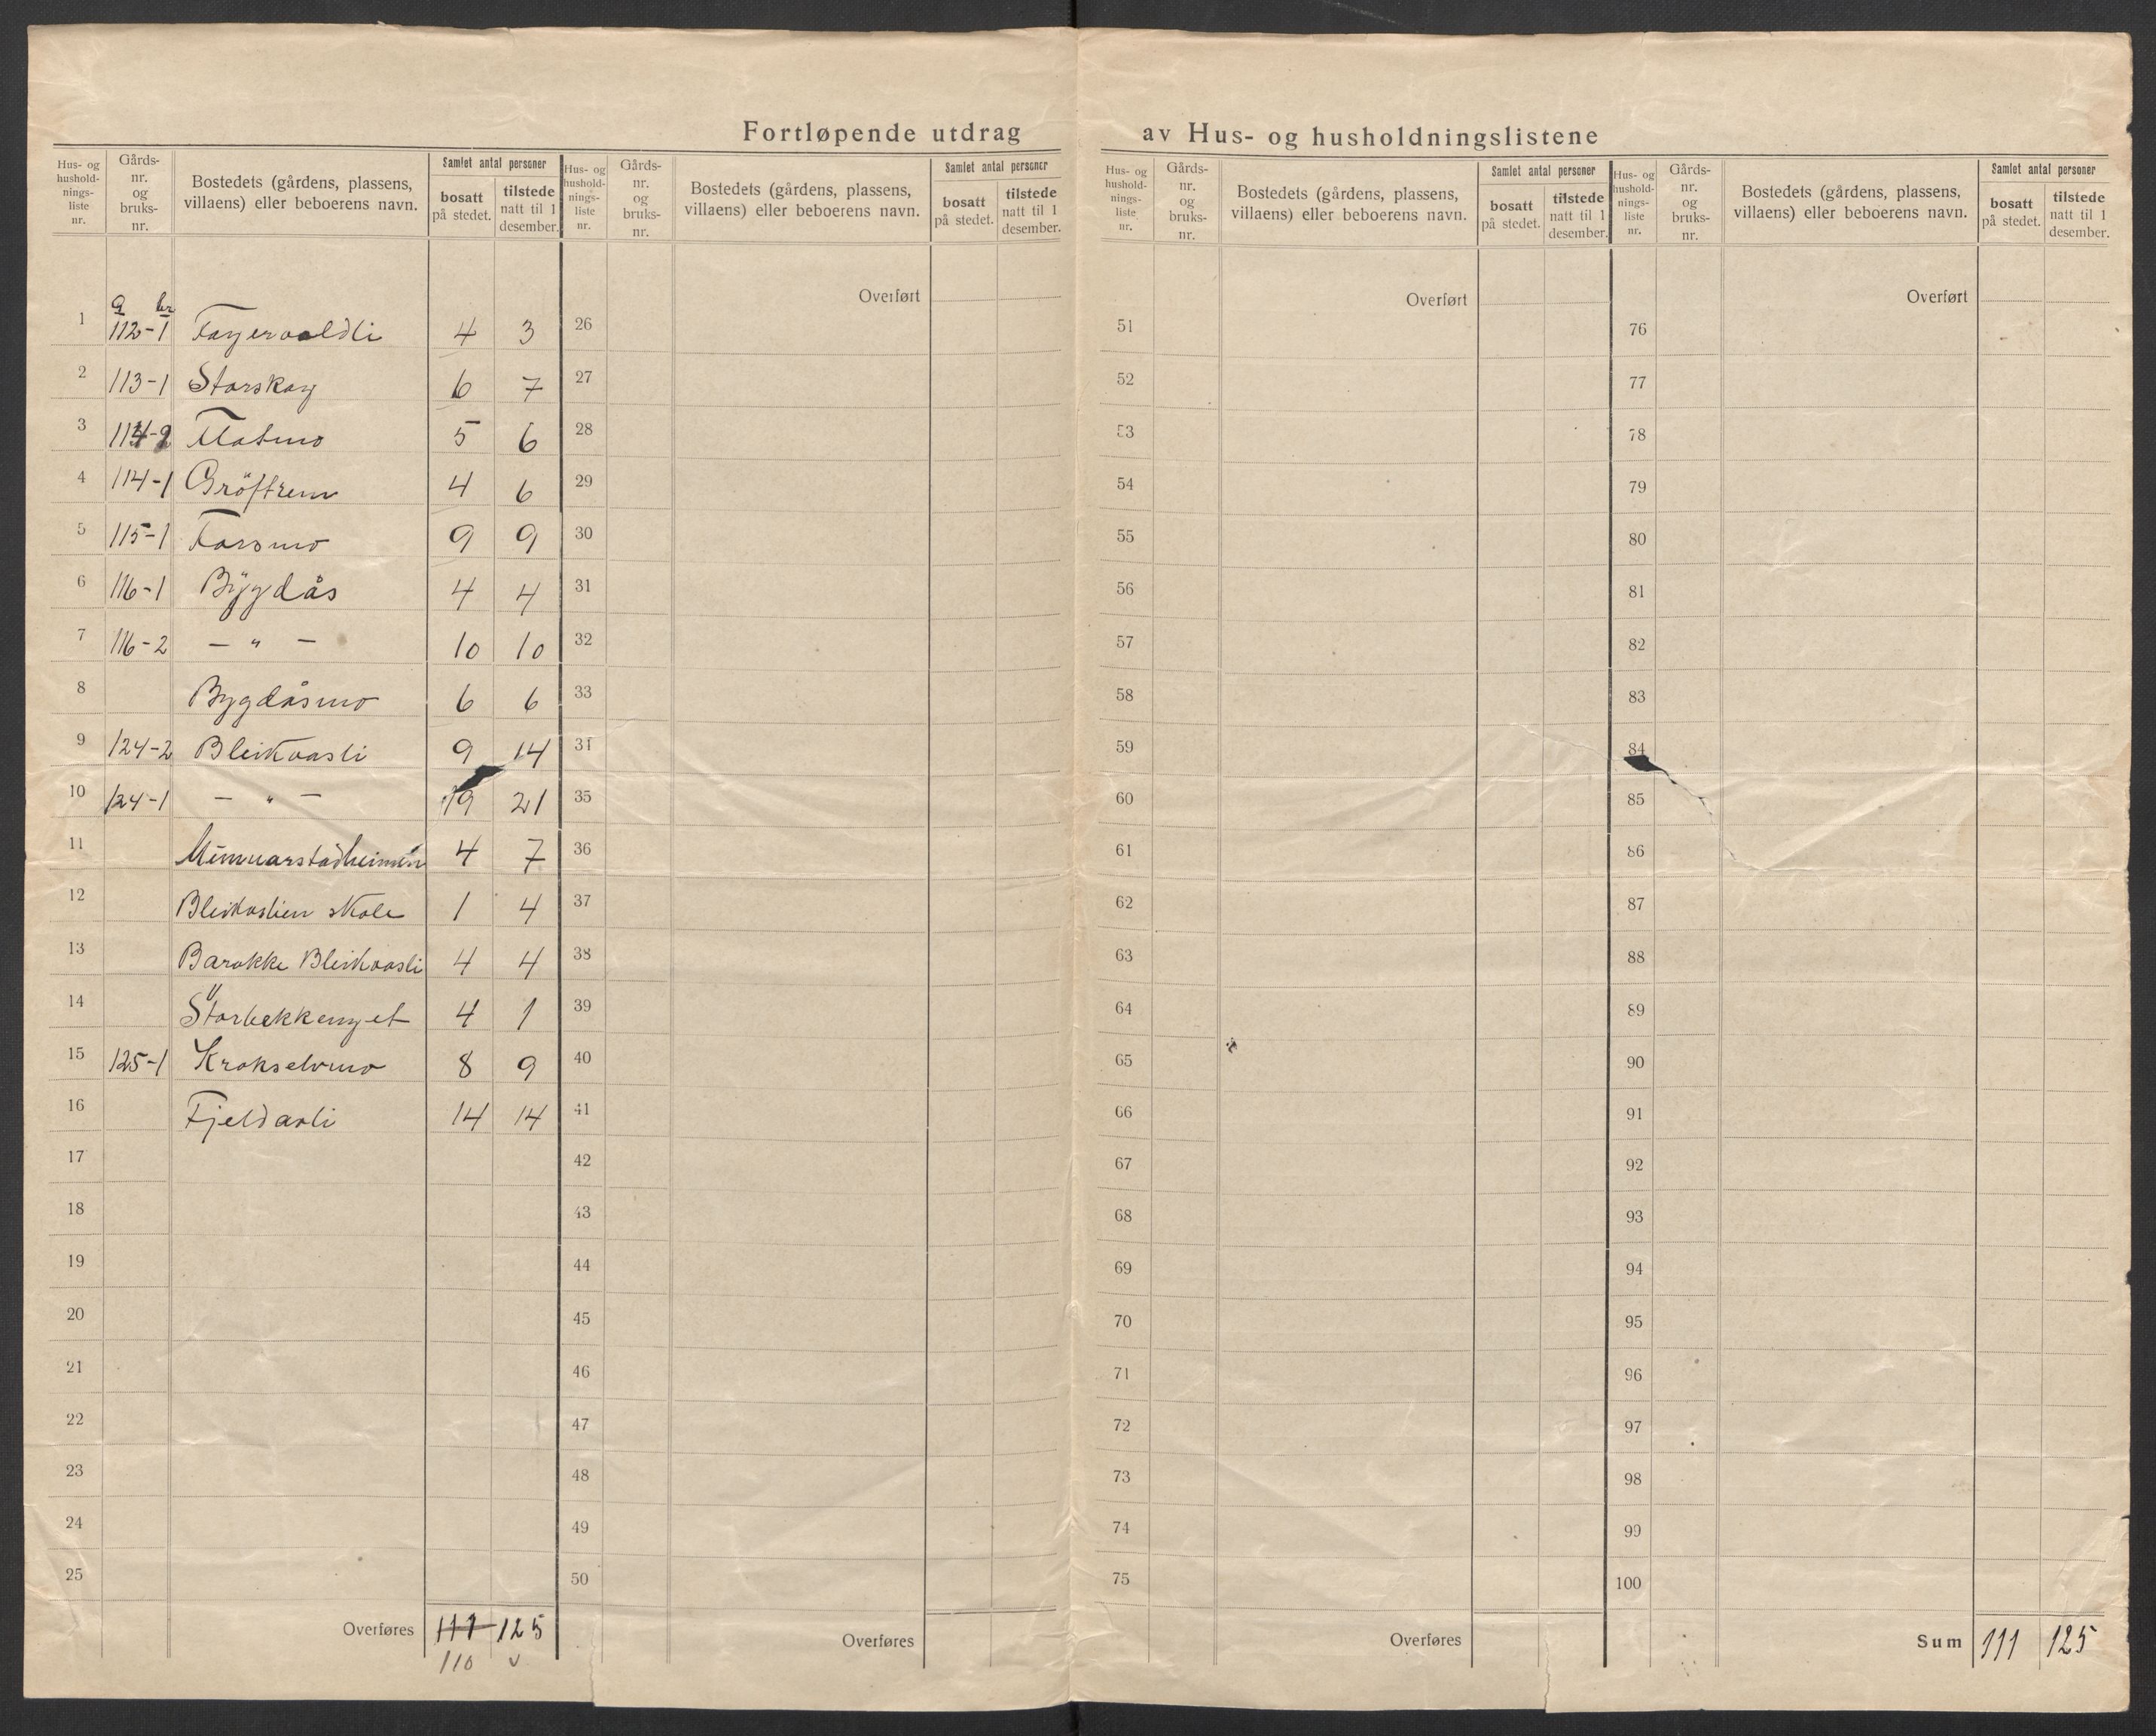 Fortløpende utdrag av Hus- og husholdningslistene
Hus- og husholdningsliste nr.
Gårds-nr. og bruks-nr.
Bostedets (gårdens, plassens, villaens) eller beboerens navn.
Samlet antal personer
bosatt på stedet.
tilstede natt til 1 desember.
Hus- og husholdningsliste nr.
Gårds-nr. og bruks-nr.
Bostedets (gårdens, plassens, villaens) eller beboerens navn.
Samlet antal personer
bosatt på stedet.
tilstede natt til 1 desember.
Hus- og husholdningsliste nr.
Gårds-nr. og bruks-nr.
Bostedets (gårdens, plassens, villaens) eller beboerens navn.
Samlet antal personer
bosatt på stedet.
tilstede natt til 1 desember.
Hus- og husholdningsliste nr.
Gårds-nr. og bruks-nr.
Bostedets (gårdens, plassens, villaens) eller beboerens navn.
Samlet antal personer
bosatt på stedet.
tilstede natt til 1 desember.
Overført Overført Overført
G br
1 112-1 Fagervoldli 4 3 26 51 76
2 113-1 Storskog 6 7 27 52 77
3 114-2 Flatmo 5 6 28 53 78
4 114-1 Gröftrem 4 6 29 54 79
5 115-1 Forsmo 9 9 30 55 80
6 116-1 Bygdås 4 4 31 56 81
7 116-2 — " — 10 10 32 57 82
8 Bygdåsmo 6 6 33 58 83
9 124-2 Bleikvasli 9 14 34 59 84
10 124-1 — " — 19 21 35 60 85
11 4 7 36 61 86
12 Bleikvaslien skole 1 4 37 62 87
13 Barakke Bleikvasli 4 4 38 63 88
14 Storbekkemyet 4 1 39 64 89
15 125-1 Krokselvmo 8 9 40 65 90
16 Fjeldavli 14 14 41 66 91
17 42 67 92
18 43 68 93
19 44 69 94
20 45 70 95
21 46 71 96
22 47 72 97
23 48 73 98
24 49 74 99
25 50 75 100
Overføres 111 125 Overføres Overføres Sum 111 125
110 v